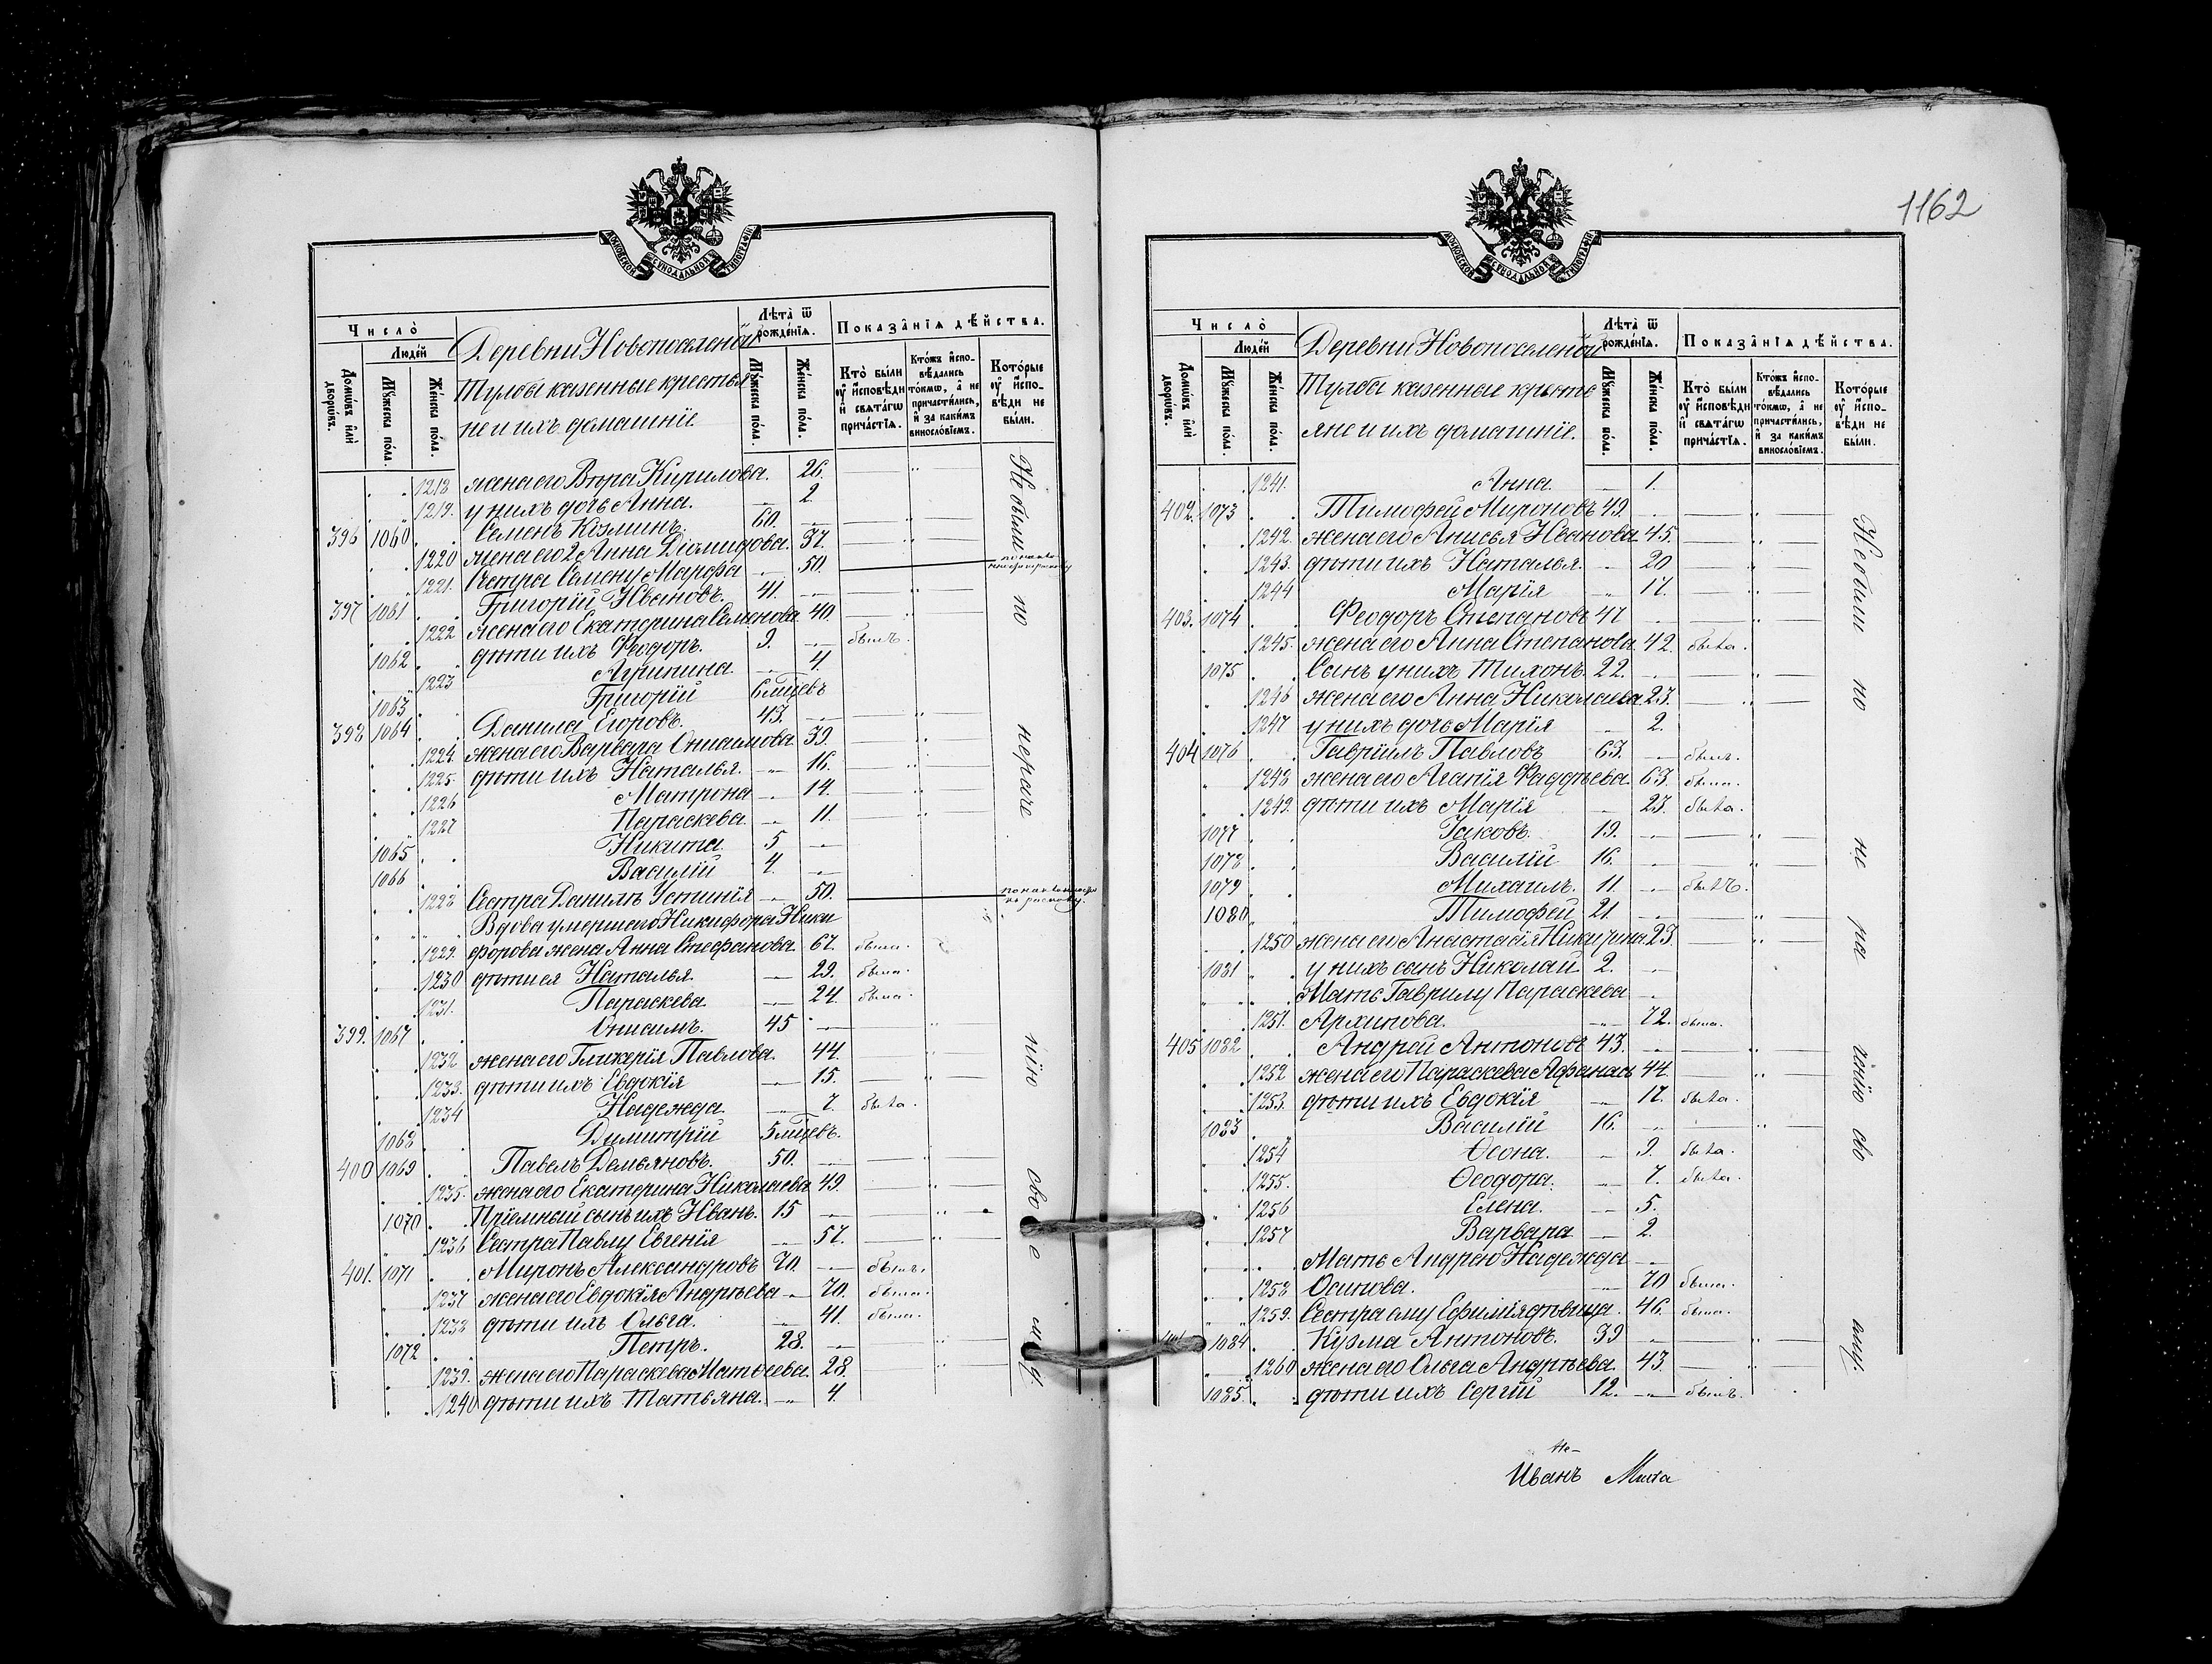 МОСКОВСКОЙ СѴНОДАЛЬНОЙ ТИПОГРАФІИ
Число̀
Людéй
Домѡ́въ и҆лѝ дворѡ́въ.
Мꙋ́жеска по́ла.
Же́нска по́ла.
Деревни Новопоселеной
Тулобы казенные крестья
не и ихъ домашніе
Лѣта̀ ѿ рождéнїѧ.
Мꙋ́жеска по́ла.
Же́нска по́ла.
Показа̂нїѧ дѣ́йства.
Кто̀ бы́ли ᲂу҆ и҆сповѣ́ди и҆ свѧта́гѡ причáстїѧ.
Кто́жъ и҆спо-вѣ́дались то́кмѡ, а҆ не причасти́лись, и҆ за каки́мъ винослóвїемъ.
Кото́рые ᲂу҆ и҆спо-вѣ́ди не бы́ли.
1218 жена его Вѣра Кирилова. 26.
1219. у нихъ дочь Анна. 2
396 1060 Семенъ Козминъ. 60.
1220 жена его 2 Анна Діомидова. 37.
1221. Сестра Семену Марфа 50.
397 1061 Григорій Ивановъ. 41.
1222 жена его Екатерина Семенова 40.
1062 дѣти ихъ Феодоръ. 9. былъ.
1223 Агрипина 4
1063 Григорій 6 мцевъ
398 1064 Данила Егоровъ. 43.
1224. жена его Варвара Онисимова 39.
1225. дѣти ихъ Наталья. 16.
1226 Матрона 14.
1227 Параскева. 11.
1065 Никита 5
1066 Василій 4.
1228 Сестра Данилѣ Устинія 50.
Вдова умершаго Никифора Ники
1229. форова жена Анна Стефанова. 67. была.
1230 дѣти ея Наталья. 29. была.
1231. Параскева 24 была.
399. 1067 Онисимъ. 45
1232 жена его Гликерія Павлова. 44.
1233. дѣти ихъ Евдокія 15.
1234 Надежда. 7. была.
1068 Димитрій 5 мцевъ.
400 1069 Павелъ Демьяновъ. 50.
1235. жена его Екатерина Николаева 49.
1070 Пріемный сынъ ихъ Иванъ. 15
1236 Сестра Павлу Евгенія 57.
401. 1071 Миронъ Александровъ 70. былъ.
1237 жена его Евдокія Андреева 70. была.
1238 дѣти ихъ Ольга. 41. была.
1072 Петръ. 28.
1239. жена его Параскева Матѳеева. 28.
1240 дѣти ихъ Татьяна. 4.
Не были по нераче нію сво е му.
1162
МОСКОВСКОЙ СѴНОДАЛЬНОЙ ТИПОГРАФІИ
Число̀
Людéй
Домѡ́въ и҆лѝ дворѡ́въ.
Мꙋ́жеска по́ла.
Же́нска по́ла.
Деревни Новопоселеной
Тулобы казенные кресть
яне и ихъ домашніе.
Лѣта̀ ѿ рождéнїѧ.
Мꙋ́жеска по́ла.
Же́нска по́ла.
Показа̂нїѧ дѣ́йства.
Кто̀ бы́ли ᲂу҆ и҆сповѣ́ди и҆ свѧта́гѡ причáстїѧ.
Кто́жъ и҆спо-вѣ́дались то́кмѡ, а҆ не причасти́лись, и҆ за каки́мъ винослóвїемъ.
Кото́рые ᲂу҆ и҆спо-вѣ́ди не бы́ли.
1241. Анна. 1.
402. 1073 Тимофей Мироновъ 49.
1242. жена его Анисья Иванова 45.
1243. дѣти ихъ Наталья. 20
1244 Марія 17.
403. 1074 Феодоръ Степановъ 47
1245. жена его Анна Степанова. 42. была.
1075 Сынъ у нихъ Тихонъ. 22.
1246 жена его Анна Николаева 23.
1247 у нихъ дочь Марія 2.
404 1076 Гавріилъ Павловъ 63. былъ.
1248 жена его Агапія Фаддѣева 63. была.
1249. дѣти ихъ Марія 23. была.
1077 Іаковъ. 19.
1078 Василій 16.
1079 Михаилъ. 11. былъ.
1080 Тимофей 21.
1250 жена его Анастасія Никифрова. 23.
1081 у нихъ сынъ Николай 2.
Мать Гаврилу Параскева
1251. Архипова. 72. была.
405 1082 Андрей Антоновъ 43.
1252 жена его Параскева Афанась 44.
1253. дѣти ихъ Евдокія 17. была.
1083 Василій 16.
1254 Ѳеона. 9. была.
1255. Ѳеодора. 7. была.
1256 Елена. 5.
1257 Варвара 2.
Мать Андрею Надежда
1258 Осипова. 70 была.
1259. Сестра ему Ефимія дѣвица. 46. была.
1084 Кузма Антоновъ. 39
1260 жена его Ольга Андреева. 43.
1085. дѣти ихъ Сергій 12. былъ.
Не были по не ра ченію сво ему.
Іе-
Иванъ